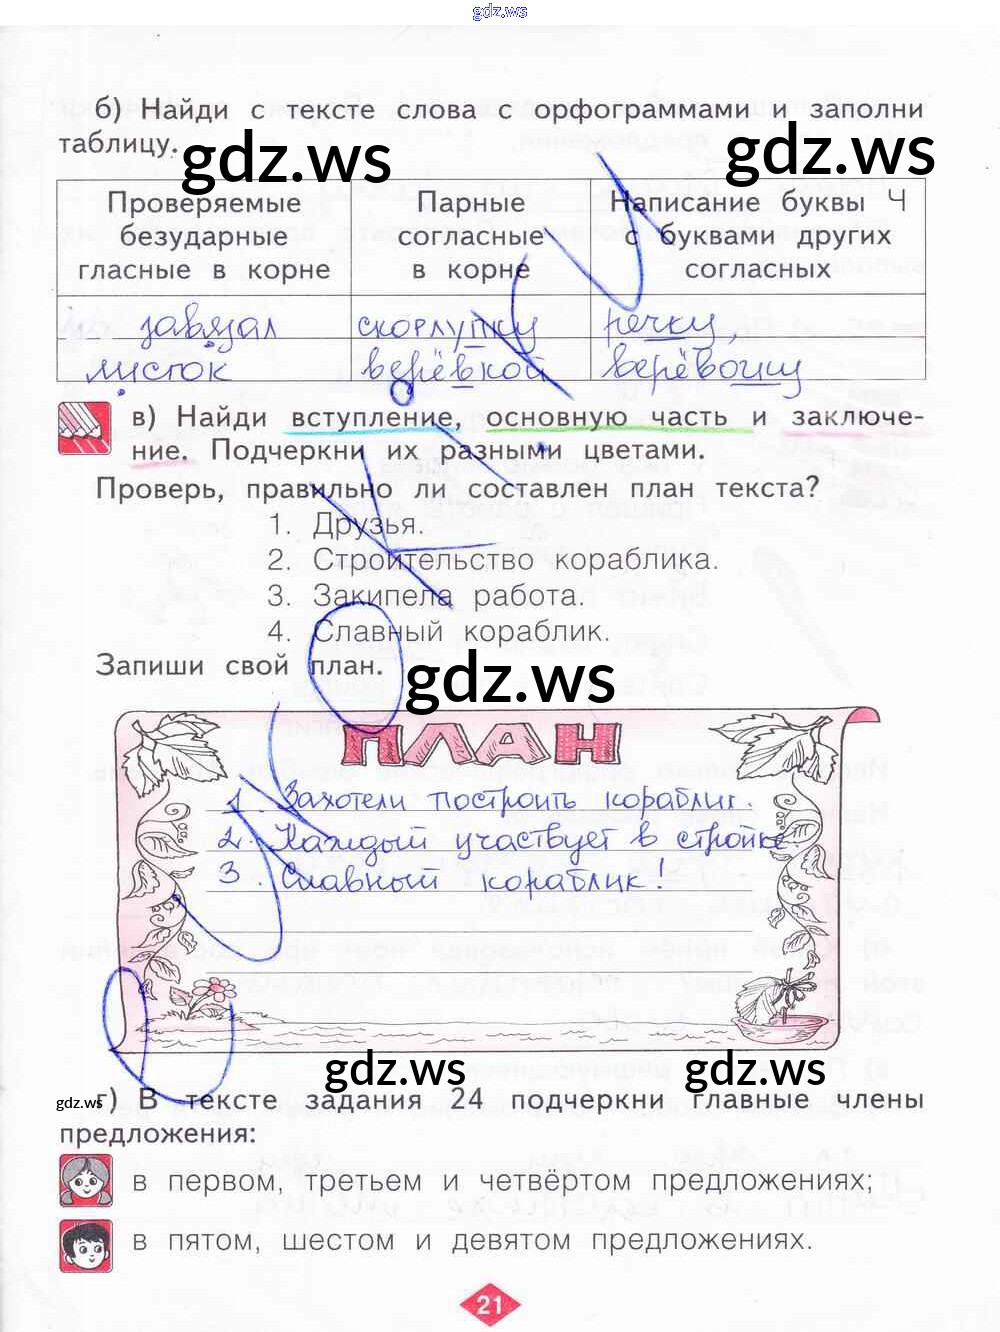 gdz.ws
б) Найди с тексте слова с орфограммами и заполни
таблицу.
gdz.ws
gdz.ws
Проверяемые безударные гласные в корне
Парные согласные в корне
Написание буквы Ч с буквами других согласных
завязал скорлупку речку,
листок верёвкой верёвочку
в) Найди вступление, основную часть и заключе-
ние. Подчеркни их разными цветами.
Проверь, правильно ли составлен план текста?
1. Друзья.
2. Строительство кораблика.
3. Закипела работа.
4. Славный кораблик.
Запиши свой план.
gdz.ws
ПЛАН
1. Захотели построить кораблик.
2. Каждый участвует в стройке.
3. Славный кораблик!
gdz.ws
gdz.ws
gdz.ws
г) В тексте задания 24 подчеркни главные члены
предложения:
в первом, третьем и четвёртом предложениях;
в пятом, шестом и девятом предложениях.
21